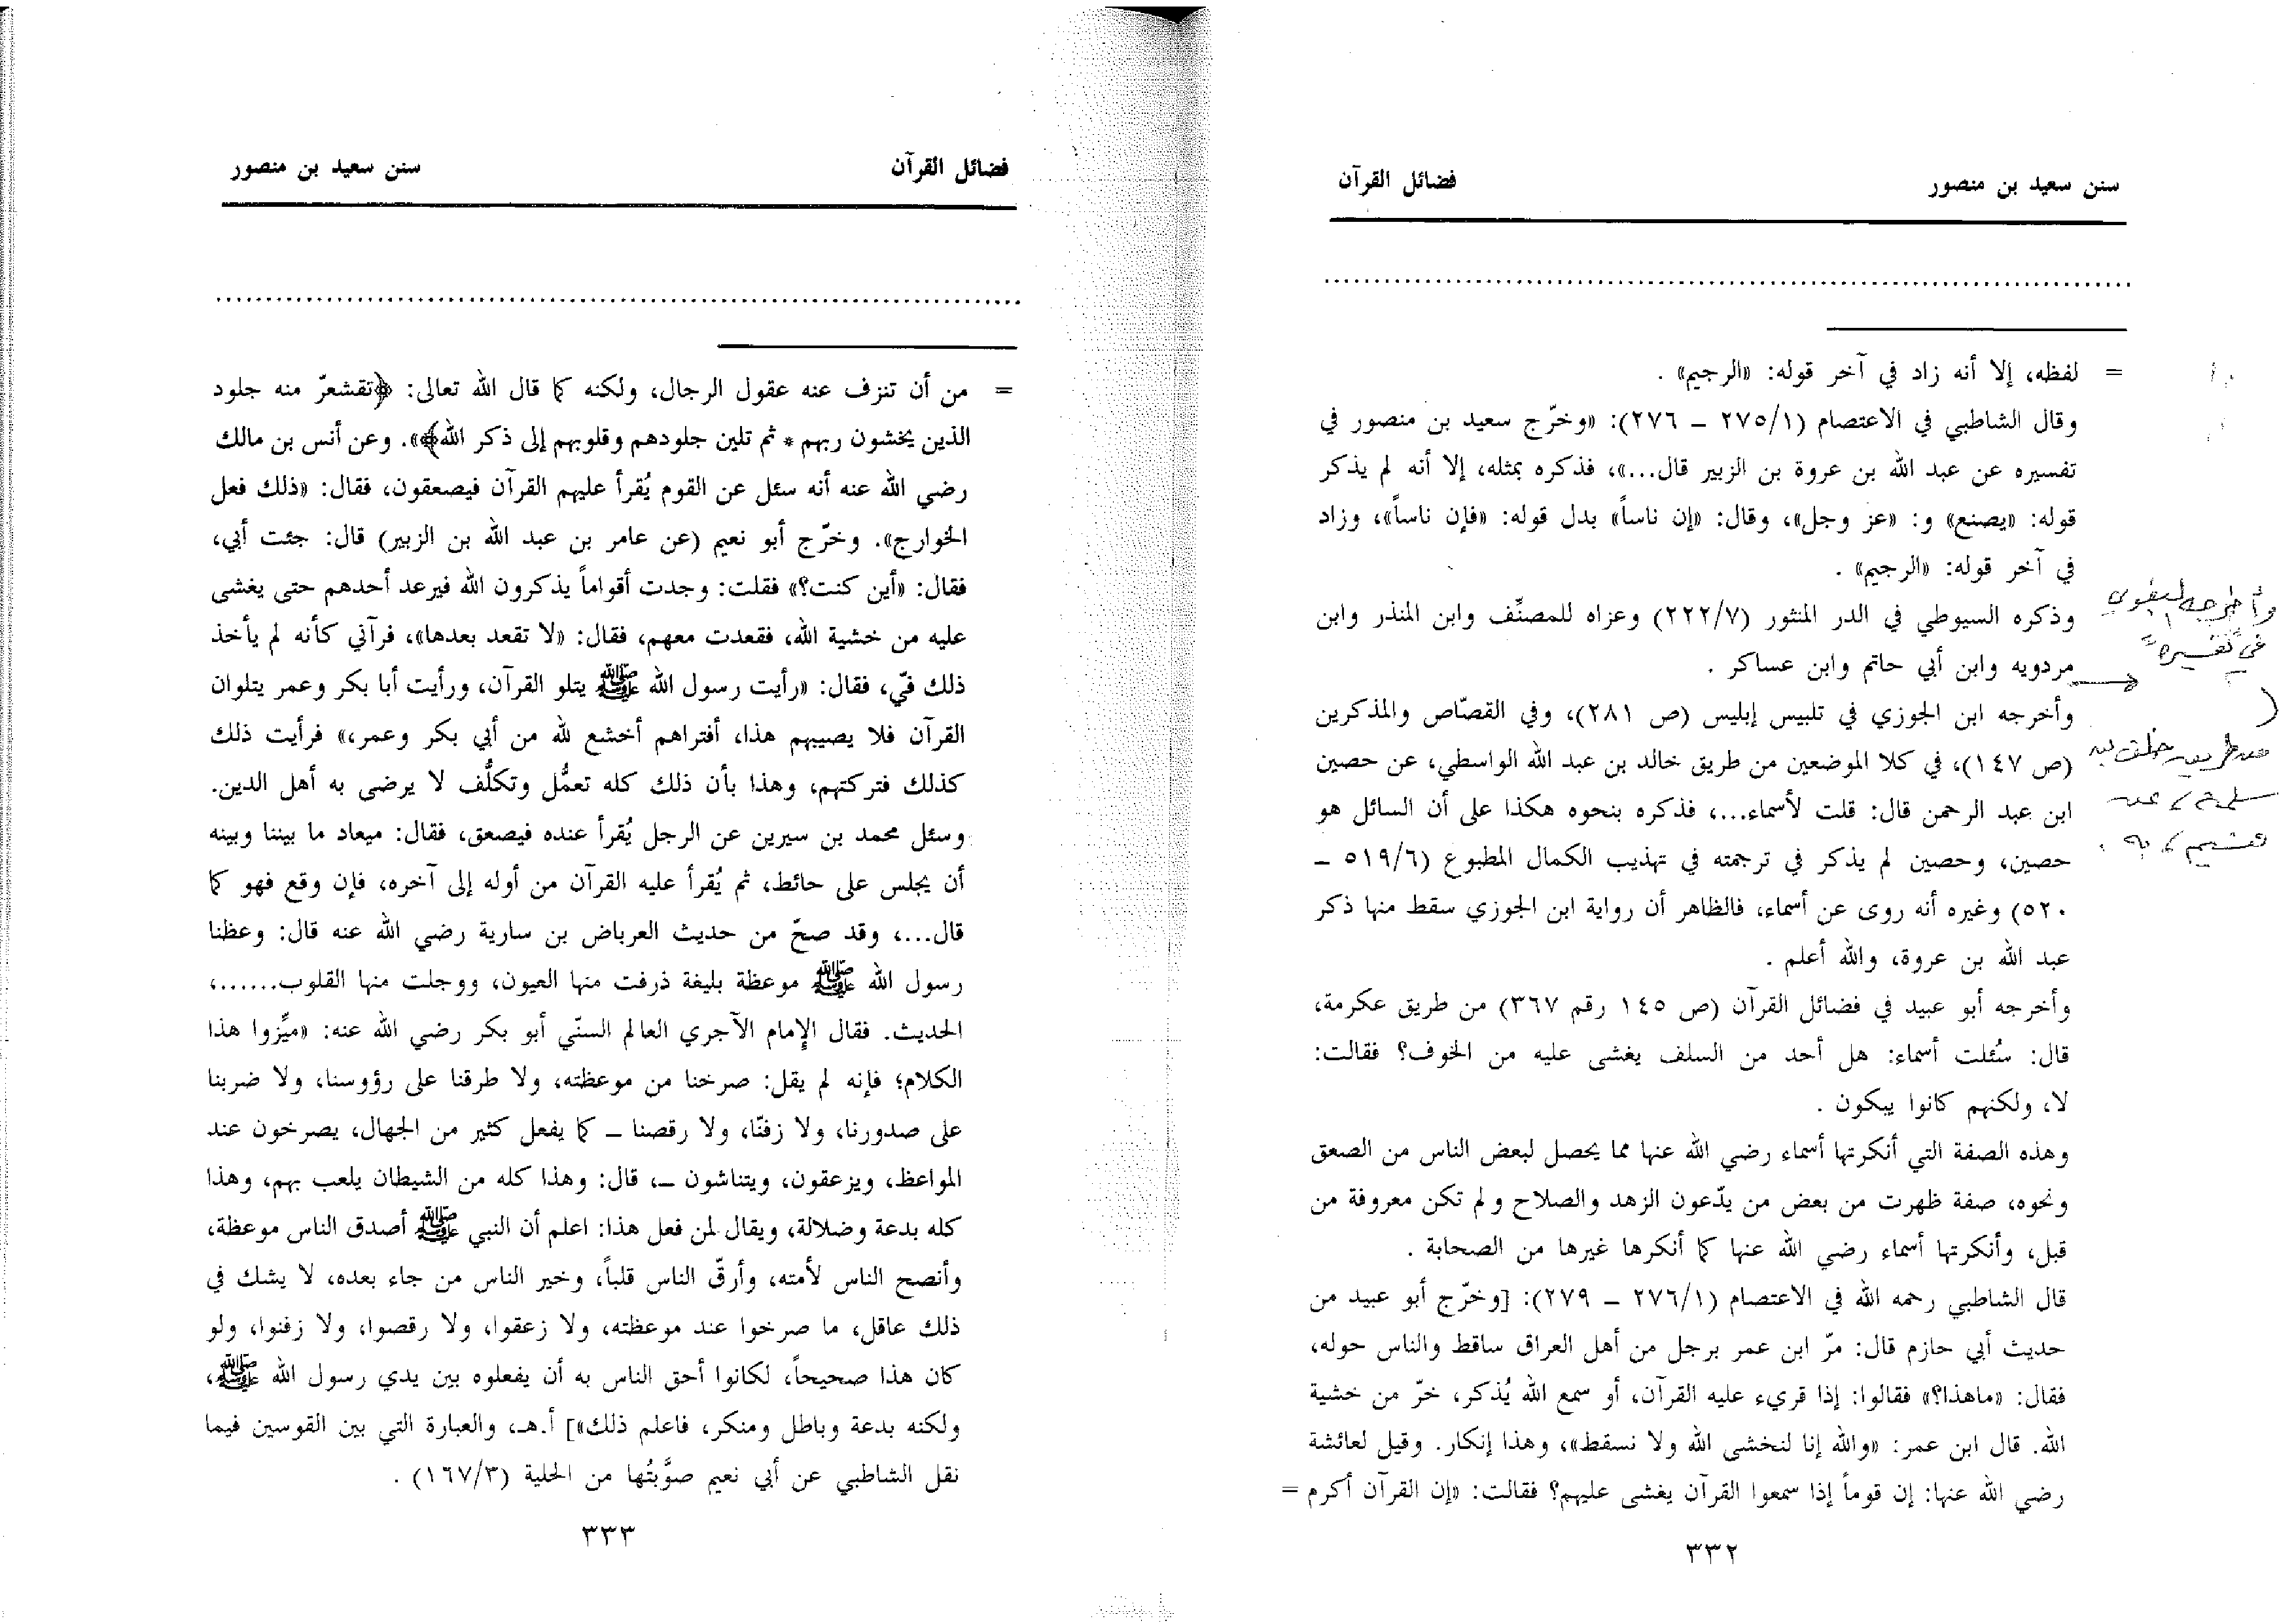 سنن سعيد بن منصور
فضائل القرآن
= لفظه، إلا أنه زاد في آخر قوله: «الرجيم» .
وقال الشاطبي في الاعتصام (٢٧٥/١ ــ ٢٧٦): «وخرّج سعيد بن منصور في
تفسيره عن عبد الله بن عروة بن الزبير قال...»، فذكره بمثله، إلا أنه لم يذكر
قوله: «يصنع» و: «عز وجل»، وقال: «إن ناساً» بدل قوله: «فإن ناساً»، وزاد
في آخر قوله: «الرجيم» .
وذكره السيوطي في الدر المنثور (٢٢٢/٧) وعزاه للمصنِّف وابن المنذر وابن
مردويه وابن أبي حاتم وابن عساكر .
وأخرجه ابن الجوزي في تلبيس إبليس (ص ٢٨١)، وفي القصّاص والمذكرين
(ص ١٤٧)، في كلا الموضعين من طريق خالد بن عبد الله الواسطي، عن حصين
ابن عبد الرحمن قال: قلت لأسماء...، فذكره بنحوه هكذا على أن السائل هو
حصين، وحصين لم يذكر في ترجمته في تهذيب الكمال المطبوع (٥١٩/٦ ــ
٥٢٠) وغيره أنه روى عن أسماء، فالظاهر أن رواية ابن الجوزي سقط منها ذكر
عبد الله بن عروة، والله أعلم .
وأخرجه أبو عبيد في فضائل القرآن (ص ١٤٥ رقم ٣٦٧) من طريق عكرمة،
قال: سُئلت أسماء: هل أحد من السلف يغشى عليه من الخوف؟ فقالت:
لا، ولكنهم كانوا يبكون .
وهذه الصفة التي أنكرتها أسماء رضي الله عنها مما يحصل لبعض الناس من الصعق
ونحوه، صفة ظهرت من بعض من يدّعون الزهد والصلاح ولم تكن معروفة من
قبل، وأنكرتها أسماء رضي الله عنها كما أنكرها غيرها من الصحابة .
قال الشاطبي رحمه الله في الاعتصام (٢٧٦/١ ــ ٢٧٩): [وخرّج أبو عبيد من
حديث أبي حازم قال: مرّ ابن عمر برجل من أهل العراق ساقط والناس حوله،
فقال: «ماهذا؟» فقالوا: إذا قريء عليه القرآن، أو سمع الله يُذكر، خرّ من خشية
الله. قال ابن عمر: «والله إنا لنخشى الله ولا نسقط»، وهذا إنكار. وقيل لعائشة
رضي الله عنها: إن قوماً إذا سمعوا القرآن يغشى عليهم؟ فقالت: «إن القرآن أكرم =
٣٣٢
وأخرجه البغوي
في تفسيره
من طريق خلف بن
سلمة، عن
هشيم، به .
فضائل القرآن
سنن سعيد بن منصور
= من أن تنزف عنه عقول الرجال، ولكنه كما قال الله تعالى: ﴿تقشعرّ منه جلود
الذين يخشون ربهم * ثم تلين جلودهم وقلوبهم إلى ذكر الله﴾». وعن أنس بن مالك
رضي الله عنه أنه سئل عن القوم يُقرأ عليهم القرآن فيصعقون، فقال: «ذلك فعل
الخوارج». وخرّج أبو نعيم (عن عامر بن عبد الله بن الزبير) قال: جئت أبي،
فقال: «أين كنت؟» فقلت: وجدت أقواماً يذكرون الله فيرعد أحدهم حتى يغشى
عليه من خشية الله، فقعدت معهم، فقال: «لا تقعد بعدها»، فرآني كأنه لم يأخذ
ذلك فيّ، فقال: «رأيت رسول الله ﷺ يتلو القرآن، ورأيت أبا بكر وعمر يتلوان
القرآن فلا يصيبهم هذا، أفتراهم أخشع لله من أبي بكر وعمر،» فرأيت ذلك
كذلك فتركتهم، وهذا بأن ذلك كله تعمُّل وتكلُّف لا يرضى به أهل الدين.
وسئل محمد بن سيرين عن الرجل يُقرأ عنده فيصعق، فقال: ميعاد ما بيننا وبينه
أن يجلس على حائط، ثم يُقرأ عليه القرآن من أوله إلى آخره، فإن وقع فهو كما
قال...، وقد صحّ من حديث العرباض بن سارية رضي الله عنه قال: وعظنا
رسول الله ﷺ موعظة بليغة ذرفت منها العيون، ووجلت منها القلوب......،
الحديث. فقال الإمام الآجري العالم السنّي أبو بكر رضي الله عنه: «ميِّزوا هذا
الكلام؛ فإنه لم يقل: صرخنا من موعظته، ولا طرقنا على رؤوسنا، ولا ضربنا
على صدورنا، ولا زفنّا، ولا رقصنا ــ كما يفعل كثير من الجهال، يصرخون عند
المواعظ، ويزعقون، ويتناشون ــ، قال: وهذا كله من الشيطان يلعب بهم، وهذا
كله بدعة وضلالة، ويقال لمن فعل هذا: اعلم أن النبي ﷺ أصدق الناس موعظة،
وأنصح الناس لأمته، وأرقّ الناس قلباً، وخير الناس من جاء بعده، لا يشك في
ذلك عاقل، ما صرخوا عند موعظته، ولا زعقوا، ولا رقصوا، ولا زفنوا، ولو
كان هذا صحيحاً، لكانوا أحق الناس به أن يفعلوه بين يدي رسول الله ﷺ،
ولكنه بدعة وباطل ومنكر، فاعلم ذلك»] أ.هـ، والعبارة التي بين القوسين فيما
نقل الشاطبي عن أبي نعيم صوَّبتُها من الحلية (١٦٧/٣) .
٣٣٣